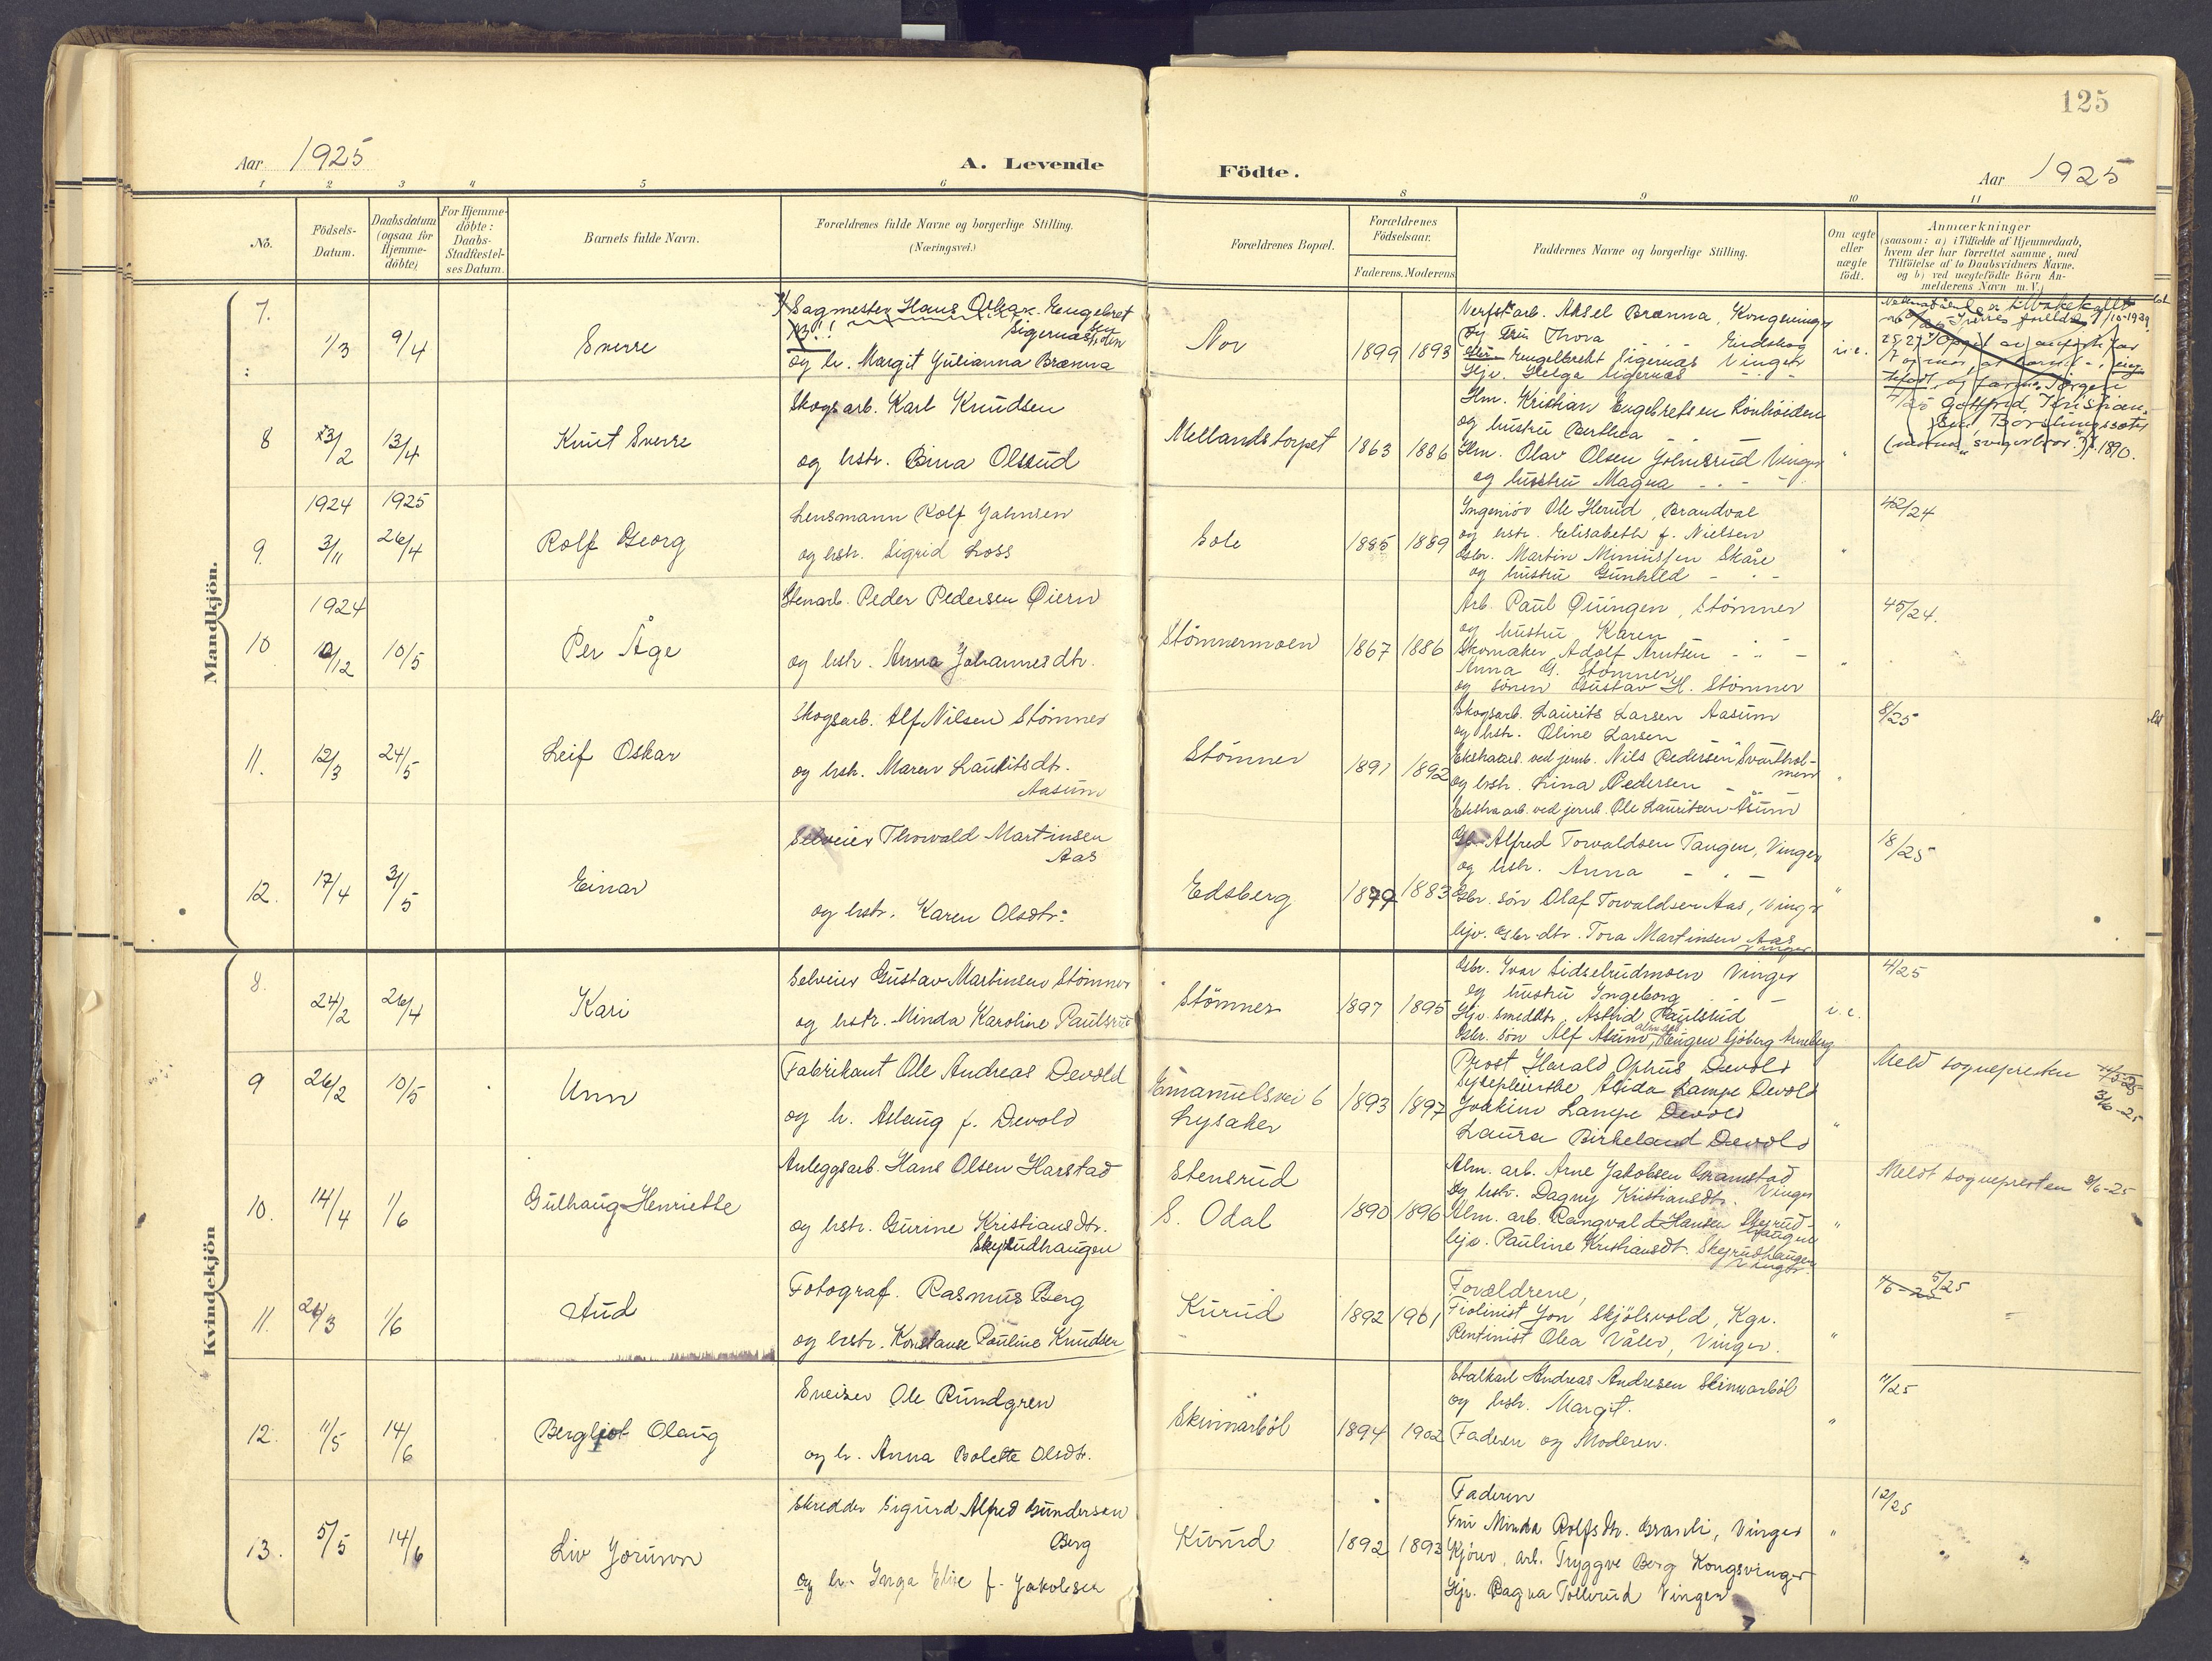 125
Aar 1925
A. Levende
Födte.
Aar 1925
1 2 3 4 5 6 8 9 10 11
No.
Födsels-
Datum.
Daabsdatum
(ogsaa for
Hjemme-
döbte)
For Hjemme-
döbte:
Daabs-
Stadfæstel-
ses Datum.
Barnets fulde Navn.
Forældrenes fulde Navne og borgerlige Stilling.
(Næringsvei.)
Forældrenes Bopæl.
Forældrenes
Födselsaar.
Faderens. Moderens.
Faddernes Navne og borgerlige Stilling.
Om ægte
eller
uægte
födt.
Anmærkninger
(saasom: a) i Tilfælde af Hjemmedaab,
hvem der har forrettet samme, med
Tilföielse af to Daabsvidners Navne.
og b) ved uægtefödte Börn An-
melderens Navn m. V.)
Mandkjön.
7.
1/3 9/4
Sverre
Sagmester Hans Oskar Engebret
sen
Sigernæs
og h. Margit Julianna Brænna
Nor
1899 1893
Verkst.arb. Aksel Brænna, Kongsvinger
og Fru Thora Eidskog
Engelbreht Sigernæs Vinger
Hjv. Helga Sigernæs
8
23/2 13/4
Knut Sverre
Skogsarb. Karl Knudsen
og hstr. Bina Olsrud
Mellandstorpet
1863 1886
Hm. Kristian Engebretsen
og hustru Berthea
Hm. Olav Olsen Vinger
og hustru Magna
9.
1924 1925
3/11 26/4
Rolf Georg
Lensmann Rolf Jahnsen
og hstr. Sigrid Loss
Sole
1885 1889
Ingeniør Ole Herud, Brandval
og hstr. Elisabeth f. Nielsen
Gbr. Martin Skåre
og hustru Gunhild
"
42/24
10
1924
10/12 10/5
Per Åge
Stenarb. Peder Pedersen Øiern
og hstr. Anna Johannesdtr.
Stömnermoen
1867 1886
Arb. Paul Stömner
og hustru Karen
Skomaker Adolf Arntsen
Anna G. Stömner
og sönen Gustav H. Stömner
"
45/24.
11.
12/3 24/5
Leif Oskar
Skogsarb. Alf Nilsen Stömner
og hstr. Maren Lauritsdtr.
Aasum
Stömner
1891 1892
Skogsarb. Laurits Larsen Aasum
og hstr. Oline Larsen
Ekstraarb. ved jernb. Nils Pedersen Svarthol-
men
og hstr. Lina Pedersen
Ekstraarb. ved jernb. Ole Lauritsen Åsum
"
8/25
12.
17/4 31/5
Einar
Selveier Thorvald Martinsen
Aas
og hstr. Karen Olsdtr.
Edsberg
1879 1883
Gbr. Alfred Torvaldsen Tangen, Vinger
og hstr. Anna
Gbr. sön Olaf Torvaldsen Aas, Vinger
hjv. Gbr. dtr. Tora Martinsen Aas
Vinger
"
18/25
Kvindekjön
8.
24/2 26/4
Kari
Selveier Gustav Martinsen Stömner
og hstr. Minda Karoline Paulsrud
Stömner
1897 1895
Gbr. Ivar Sidselrudmoen Vinger
og hustru Ingeborg
Hjv. smeddtr. Astrid Paulsrud
Gbr. sön Alf Åsum, Sjöberg Arneberg
4/25
9
26/2 10/5
Unn
Fabrikant Ole Andreas Devold
og h. Aslaug f. Devold
Emanuelsvei 6
Lysaker
1893 1897
Prost Harald Ophus Devold
Sykepleierske Alida Lampe Devold
Joakim Lampe Devold
Laura Birkeland Devold
"
Meld sognepresten 3/6-25
10.
14/4 1/6
Gulhaug Henriette
Anleggsarb. Hans Olsen Harstad
og hstr. Gurine Kristiansdtr.
Skyrudhaugen
Stensrud
S. Odal
1890 1896
Alm. arb. Arne Jakobsen Gramstad
og hstr. Dagny Kristiansdtr. Vinger
Alm. arb. Rangvald Hansen Skyrud-
haugen
hjv. Pauline Kristiansdt. Skyrudhaugen
Vinger.
"
Meldt sognepresten 3/6-25
11.
26/3 1/6
Aud
Fotograf. Rasmus Berg
og hstr. Konstanse Pauline Knudsen
Kurud
1892 1901
Forældrene,
Fiolinist Jon Skjölsvold, Kgv.
Rentinist Olea Våler, Vinger.
"
5/25
12.
11/5 14/6
Bergljot Olaug
Sveiser Ole Rundgren
og h. Anna Bolette Olsdt.
Skinnarböl
1894 1902
Stalkarl Andreas Andresen Skinnarböl
og hstr. Margit.
Faderen og Moderen.
"
11/25
13.
5/5 14/6
Liv Jorunn
Skredder Sigurd Alfred Gundersen
Berg
og h. Inga Elise f. Jakobsen
Kurud
1892 1893
Faderen
Fru Minda Rolfsdtr. Vinger
Kjörer. arb. Tryggve Berg Kongsvinger
Hjv. Ragna Tollerud Vinger
"
12/25